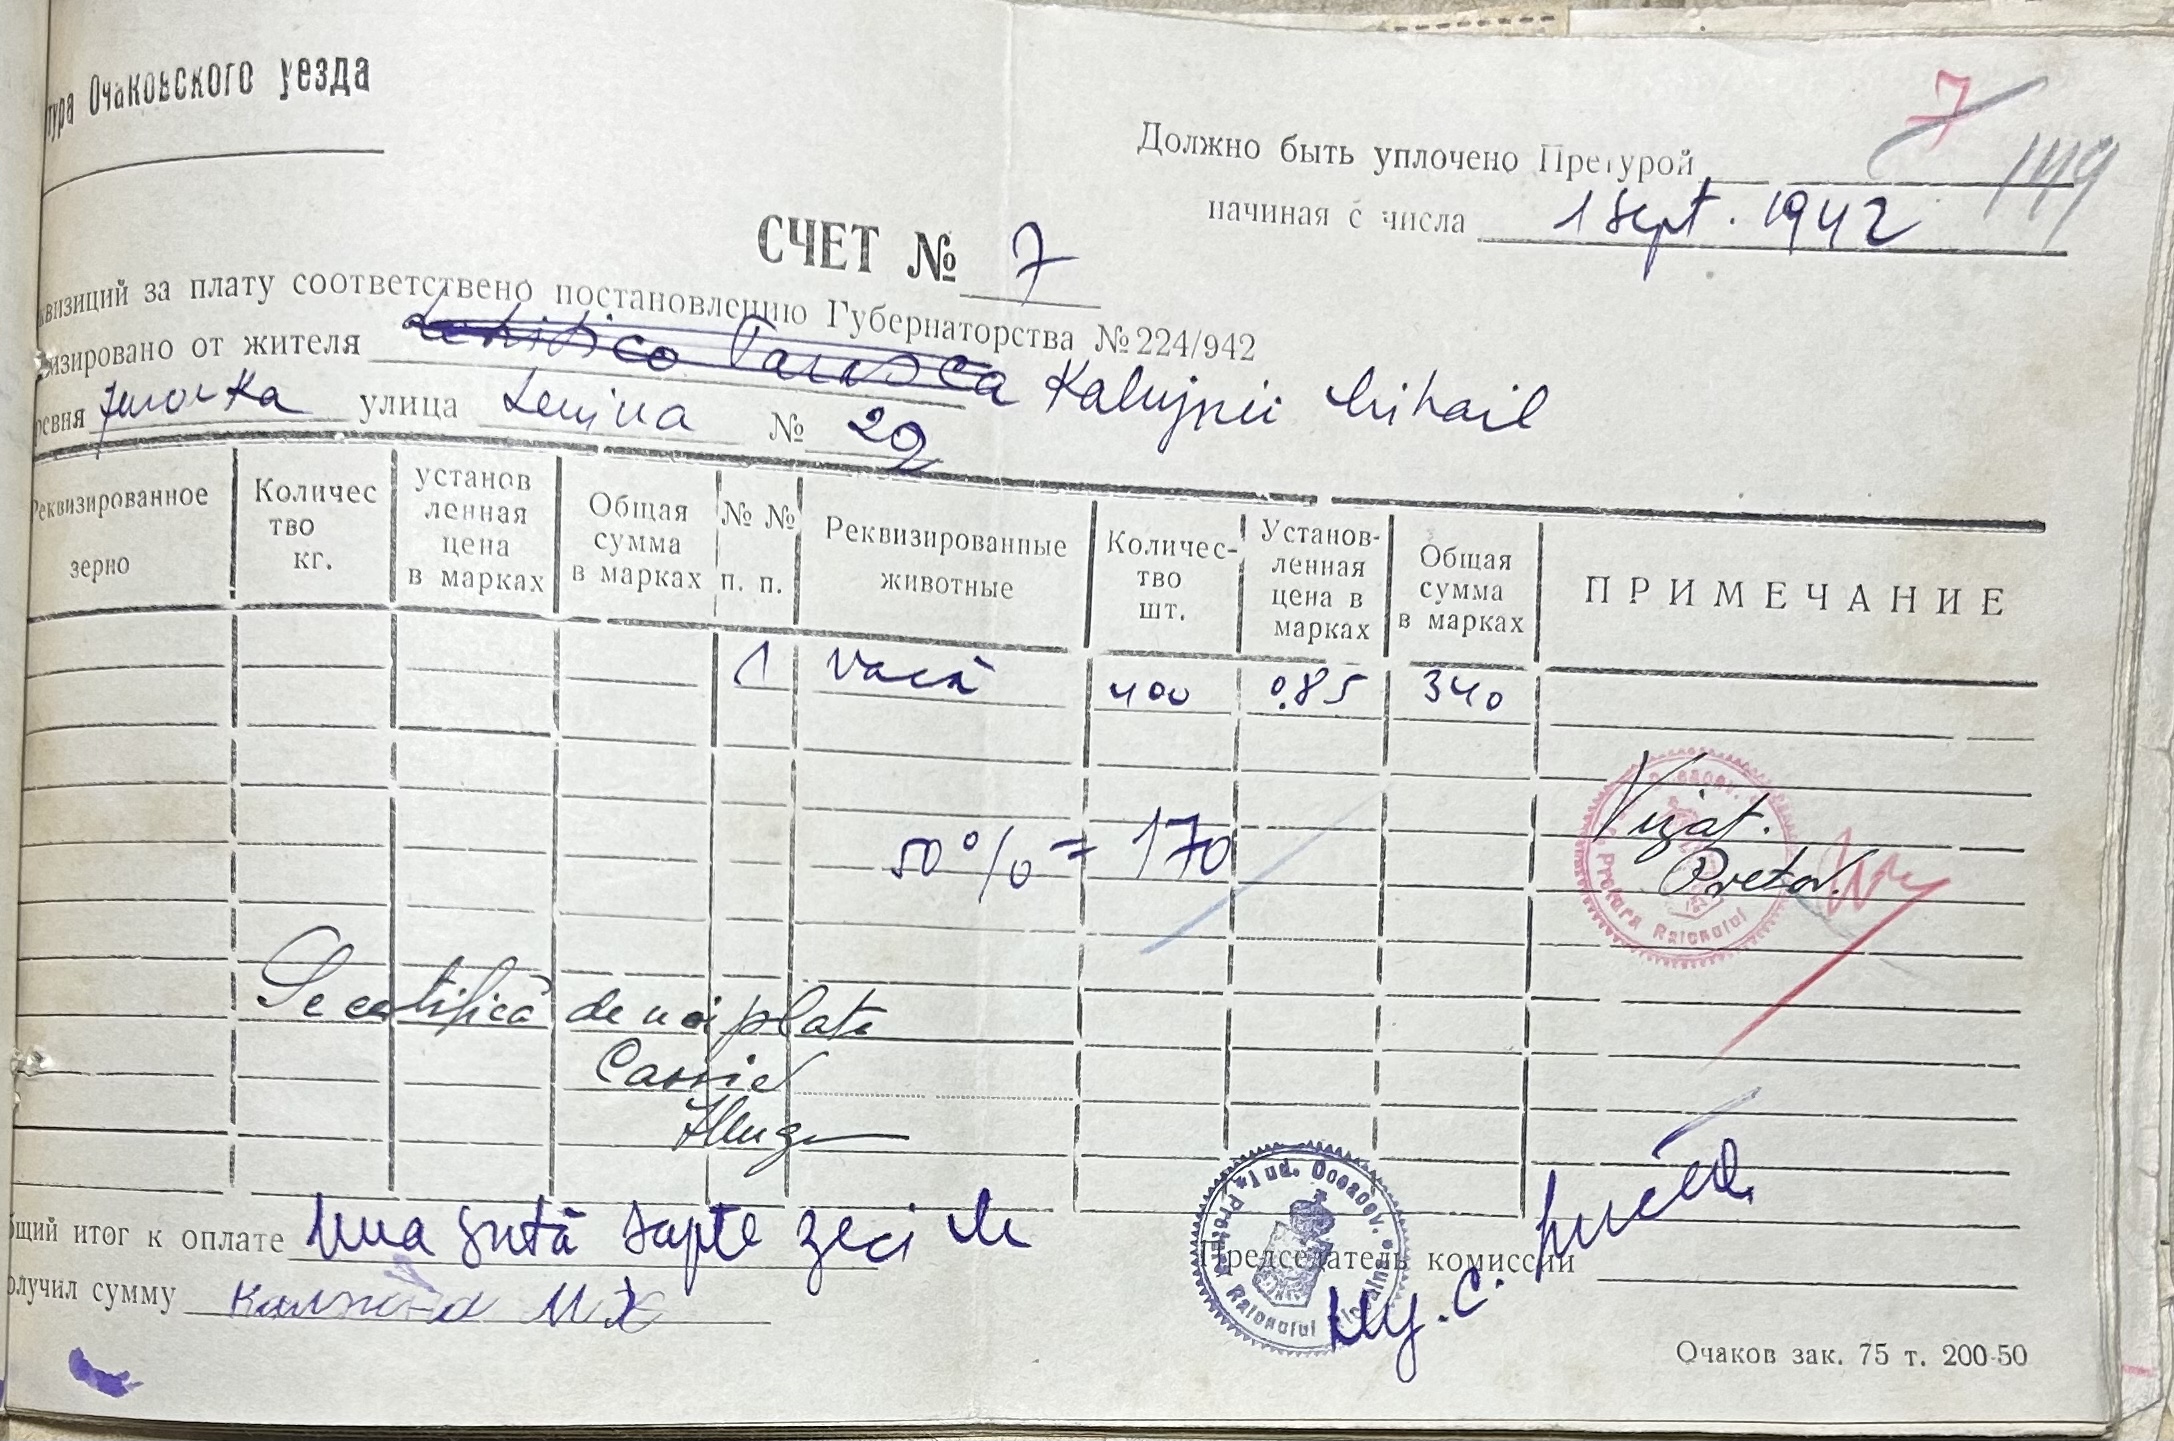 тура Очаковского уезда
7
149
Должно быть уплочено Претурой
начиная с числа 1 Sept. 1942
СЧЕТ № 7
квизиций за плату соответствено постановлению Губернаторства № 224/942
изировано от жителя Kalujnii Mihail
ревня улица Lenina № 29
Реквизированное зерно
Количес тво кг.
установ ленная цена в марках
Общая сумма в марках
№ № п. п.
Реквизированные животные
Количес- тво шт.
Установ- ленная цена в марках
Общая сумма в марках
ПРИМЕЧАНИЕ
1 vacă 400 0.85 340
50% = 170
Vizat.
Pretor.
Pretura Raionului
Se certifică de noi plata
Casier
бщий итог к оплате Una sută șapte zeci
олучил сумму
Председатель комиссии
Jud. Oceacov. Pretura Raionului
Очаков зак. 75 т. 200-50